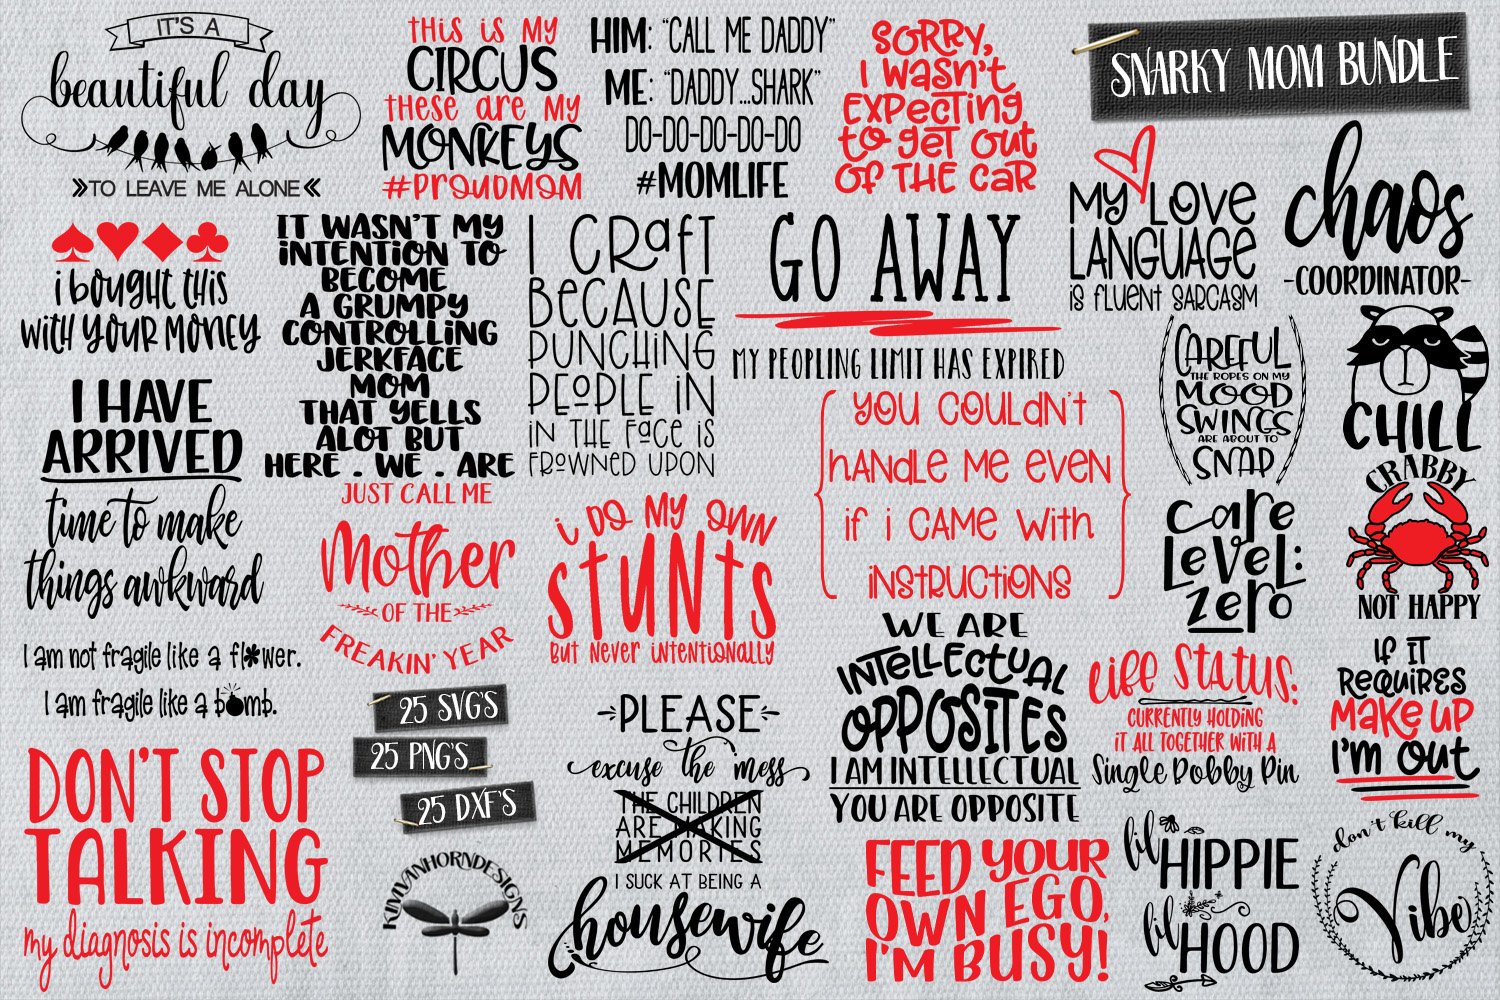 IT'S A
beautiful day
TO LEAVE ME ALONE
THIS IS MY
CIRCUS
THESE ARE MY
MONKEYS
#PROUDMOM
HIM: "CALL ME DADDY"
ME: "DADDY...SHARK"
DO-DO-DO-DO-DO
#MOMLIFE
SORRY,
I WASN'T
EXPECTING
to get out
OF THE CAR
SNARKY MOM BUNDLE
MY LOVE
LANGUAGE
IS FLUENT SARCASM
chaos
-COORDINATOR-
i bought this
with YOUR MONEY
IT WASN'T MY
INTENTION TO
BECOME
A GRUMPY
CONTROLLING
JERKFACE
MOM
THAT YELLS
ALOT BUT
HERE . WE . ARE
I CRAFT
BECAUSE
PUNCHING
PEOPLE IN
IN THE FACE IS
FROWNED UPON
GO AWAY
MY PEOPLING LIMIT HAS EXPIRED
CAREFUL
THE ROPES ON MY
MOOD
SWINGS
ARE ABOUT TO
SNAP
CHILL
I HAVE
ARRIVED
time to make
things awkward
JUST CALL ME
Mother
OF THE
FREAKIN' YEAR
i DO MY OWN
STUNTS
BUT NEVER INTENTIONALLY
YOU COULDN'T
HANDLE ME EVEN
IF I CAME WITH
INSTRUCTIONS
CARE
LEVEL:
ZERO
CRABBY
NOT HAPPY
I am not fragile like a flower.
I am fragile like a bomb.
25 SVG'S
25 PNG'S
25 DXF'S
KIMVANHORNDESIGNS
PLEASE
excuse the mess
THE CHILDREN
ARE MAKING
MEMORIES
I SUCK AT BEING A
housewife
WE ARE
INTELLECTUAL
OPPOSITES
I AM INTELLECTUAL
YOU ARE OPPOSITE
Life Status:
CURRENTLY HOLDING
IT ALL TOGETHER WITH A
Single Bobby Pin
IF IT
REQUIRES
MAKE UP
I'M OUT
DON'T STOP
TALKING
my diagnosis is incomplete
FEED YOUR
OWN EGO,
I'M BUSY!
lil HIPPIE
lil HOOD
don't kill my
Vibe